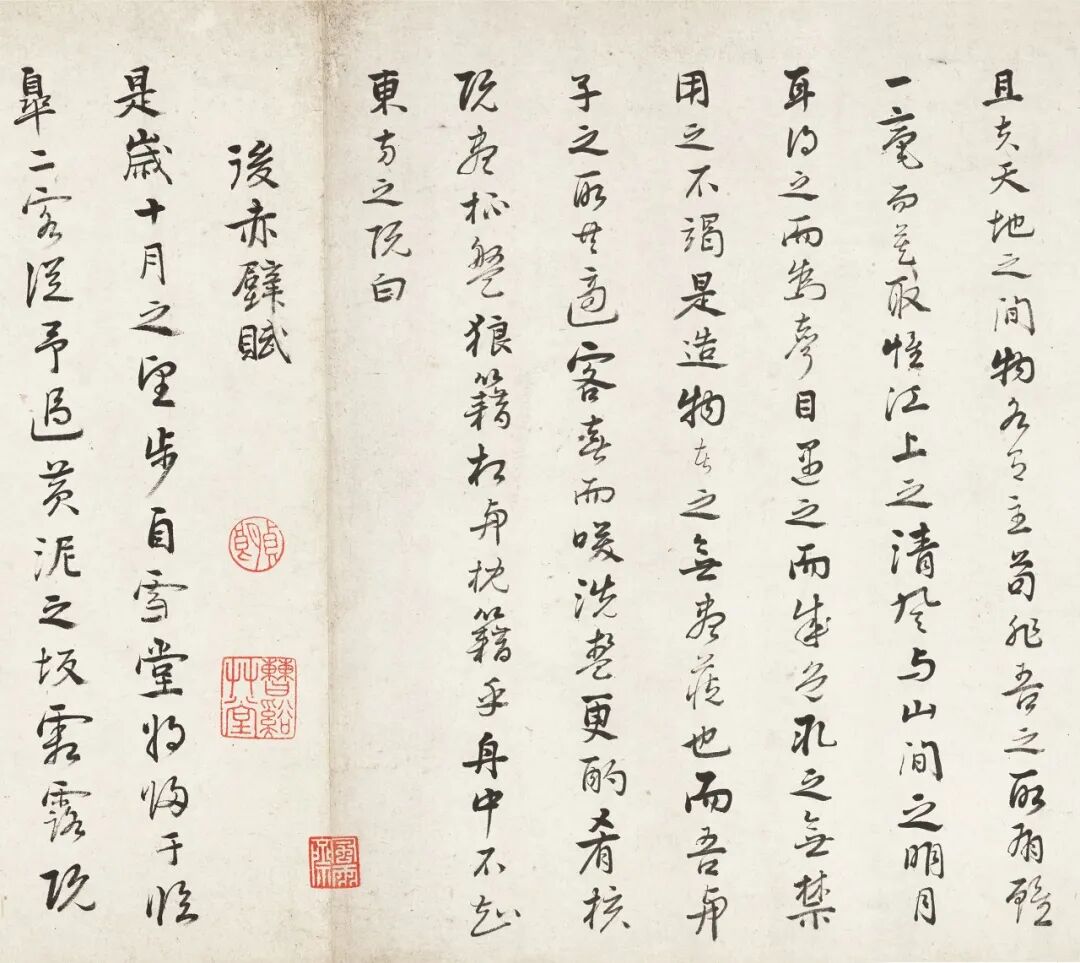 且夫天地之間物各有主茍非吾之所有雖
一毫而莫取惟江上之清風与山間之明月
耳得之而為聲目遇之而成色取之無禁
用之不竭是造物者之無盡藏也而吾與
子之所共適客喜而咲洗盞更酌肴核
既盡杯盤狼籍相與枕籍乎舟中不知
東方之既白
後赤壁賦
是歲十月之望步自雪堂將歸于臨
皐二客從予過黃泥之坂霜露既